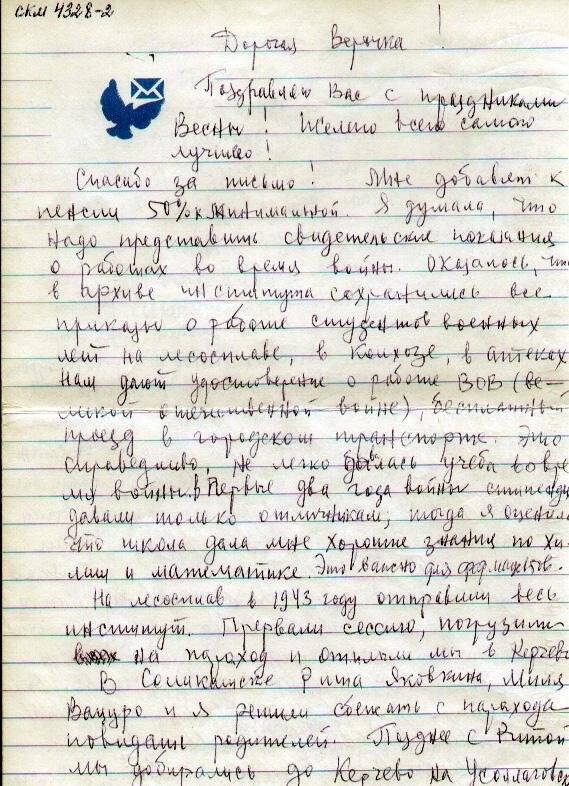 СКМ 4328-2
Дорогая Верочка!
Поздравляю Вас с праздниками
Весны! Желаю всего самого
лучшего!
Спасибо за письмо! Мне добавят к
пенсии 50% к минимальной. Я думала, что
надо представить свидетельские показания
о работах во время войны. Оказалось, что
в архиве института сохранились все
приказы о работе студентов военных
лет на лесосплаве, в колхозе, в аптеках
Нам дают удостоверение о работе ВОВ (ве-
ликой отечественной войне), бесплатный
проезд в городском транспорте. Это
справедливо, не легко давалась учеба во вре
мя войны. Первые два года войны стипендию
давали только отличникам, тогда я оценила
что школа дала мне хорошие знания по хи
мии и математике. Это важно для фармацевтов.
На лесосплав в 1943 году отправили весь
институт. Прервали сессию, погрузили
на параход и отплыли мы в Керчево
В Соликамске Рита Яковкина, Миля
Вацуро и я решили сбежать с парахода
повидать родителей. Позднее с Ритой
мы добирались до Керчево на